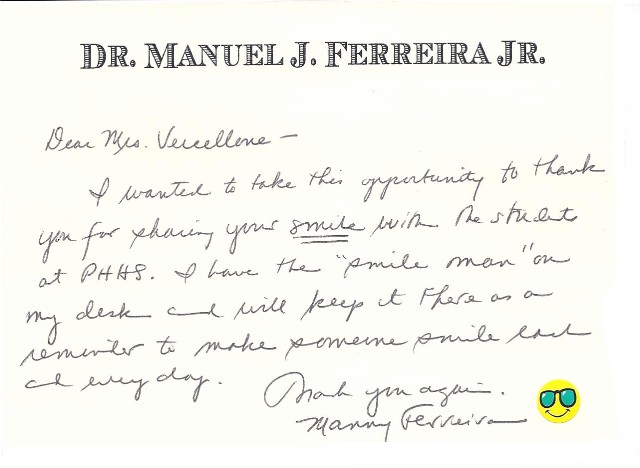 DR. MANUEL J. FERREIRA JR.
Dear Mrs. Vercellone —
I wanted to take this opportunity to thank
you for sharing your smile with the students
at PHHS. I have the "smile man" on
my desk and will keep it there as a
reminder to make someone smile each
and every day.
Thank you again.
Manny Ferreira